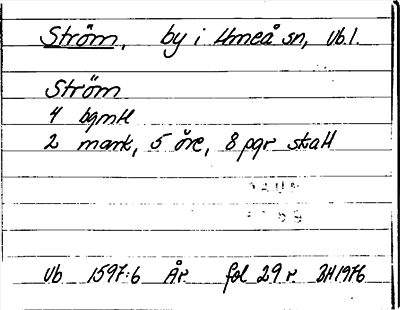 Ström, by i Umeå sn, Vb.l.
Ström
4 bgmtl
2 mark, 5 öre, 8 pgr skatt
Vb 1597:6 År fol 29 r. BH1976